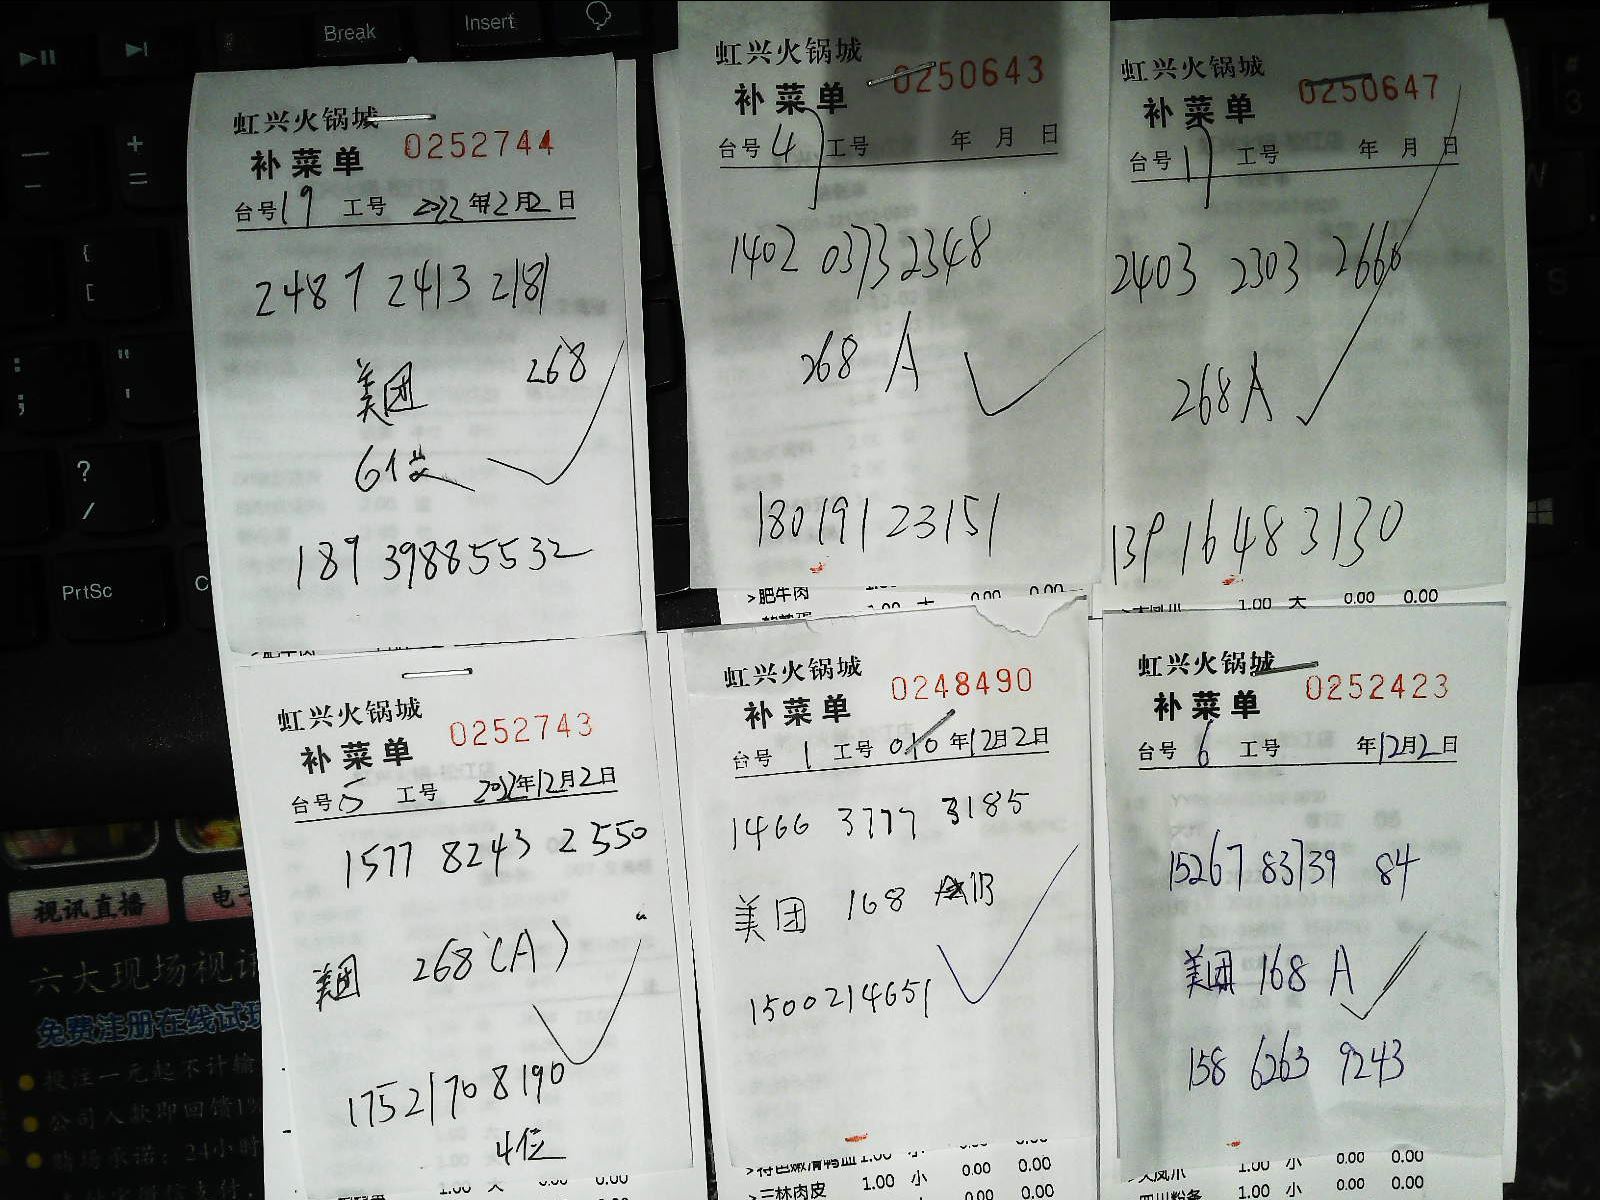 Break
Insert
虹兴火锅城
补菜单 0252744
台号19 工号 2022年12月2日
2487 2413 2181
美团 268
6位
189 39885532
虹兴火锅城
补菜单 0250643
台号4 工号 年 月 日
1402 0373 2348
268 A
18019123151
>肥牛肉
1.00 大 0.00 0.00
虹兴火锅城
补菜单 0250647
台号17 工号 年 月 日
2403 2303 2666
268A
139 16483130
1.00 大 0.00 0.00
PrtSc
虹兴火锅城
补菜单 0252743
台号5 工号 2022年12月2日
1577 8243 2550
美团 268(A)
17521708190
4位
虹兴火锅城
补菜单 0248490
台号 1 工号 010 年12月2日
1466 3777 3185
美团 168 B
1500214651
>特色嫩滑鸭血 1.00 小 0.00 0.00
>三林肉皮 1.00 小 0.00 0.00
虹兴火锅城
补菜单 0252423
台号6 工号 年12月2日
15267 83739 84
美团 168 A
158 6263 9243
1.00 小 0.00 0.00
四川粉条 1.00 小 0.00 0.00
视讯直播
六大现场视讯
免费注册在线试玩
投注一元起不计输
公司入款即回馈1%
赌场承诺：24小时